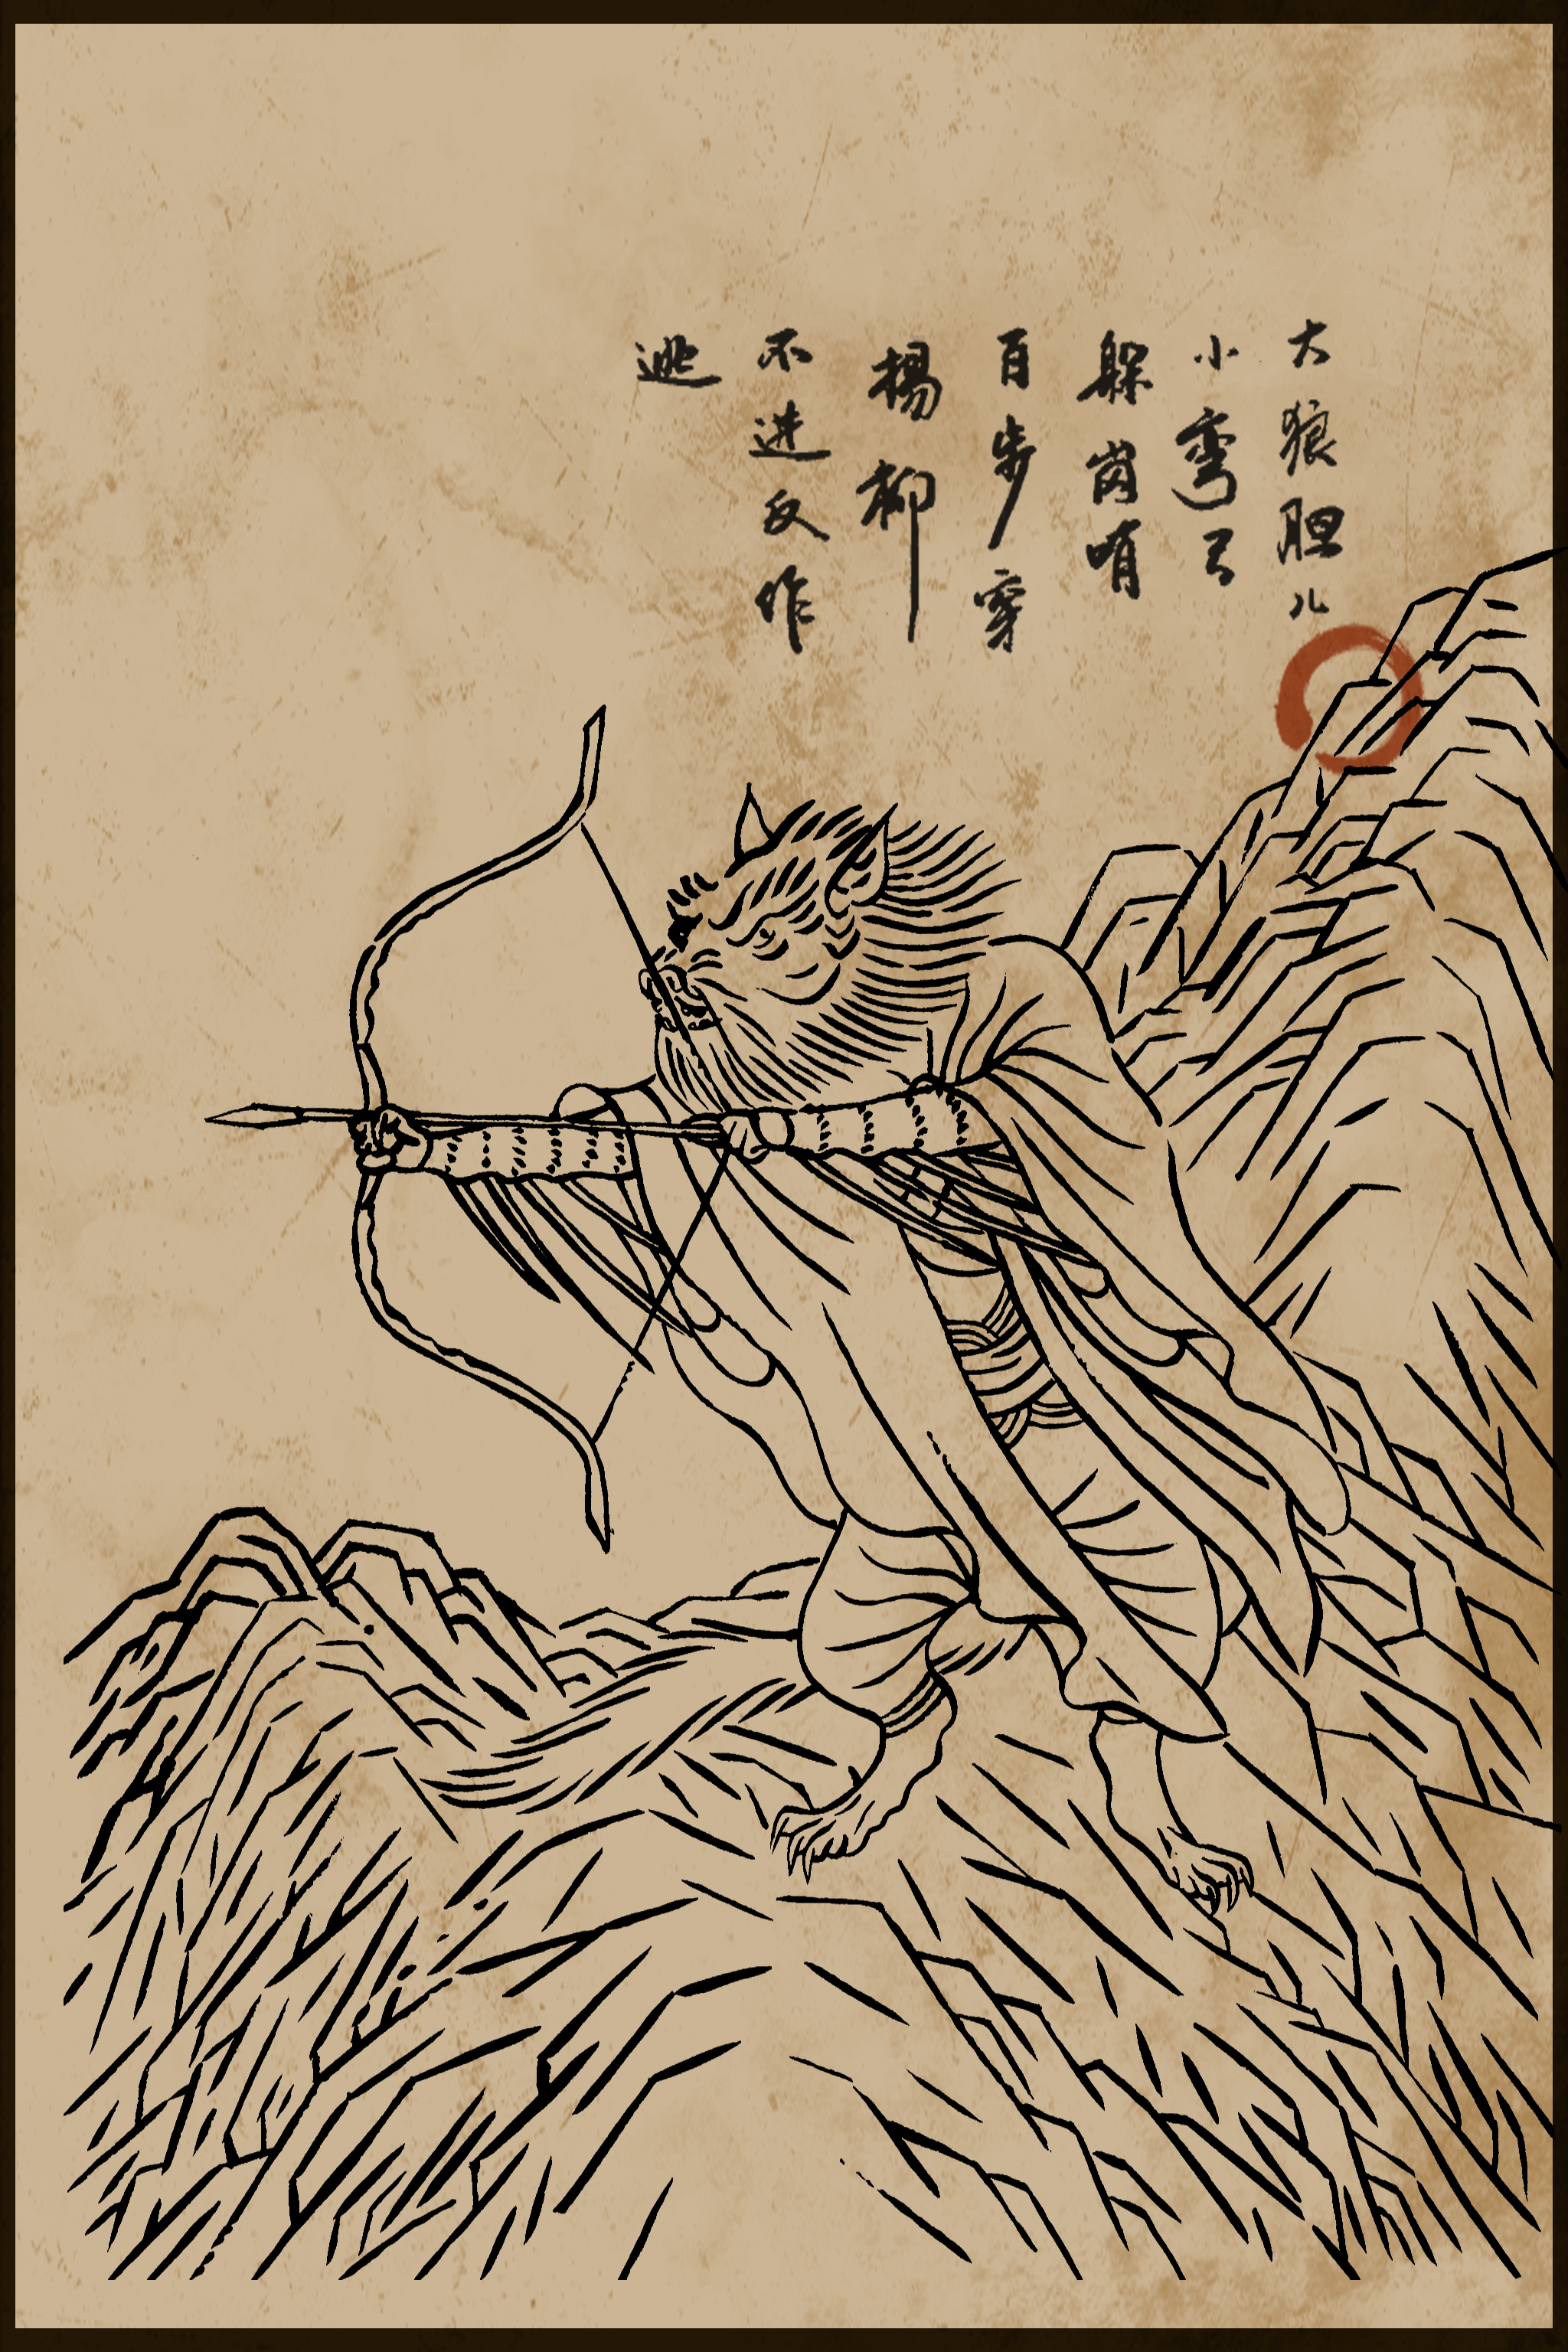 大狼胆儿
小弯弓
躲岗哨
百步穿
楊柳
不进反作
逃